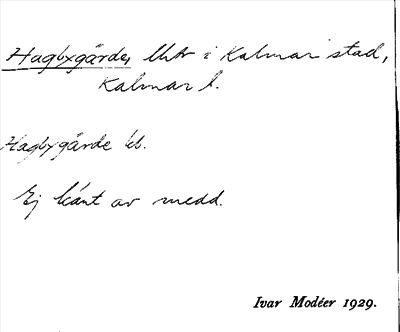 Hagbygärde, Uttr i Kalmar stad,
Kalmar l.
Hagbygärde kb.
Ej känt av medd.
Ivar Modéer 1929.